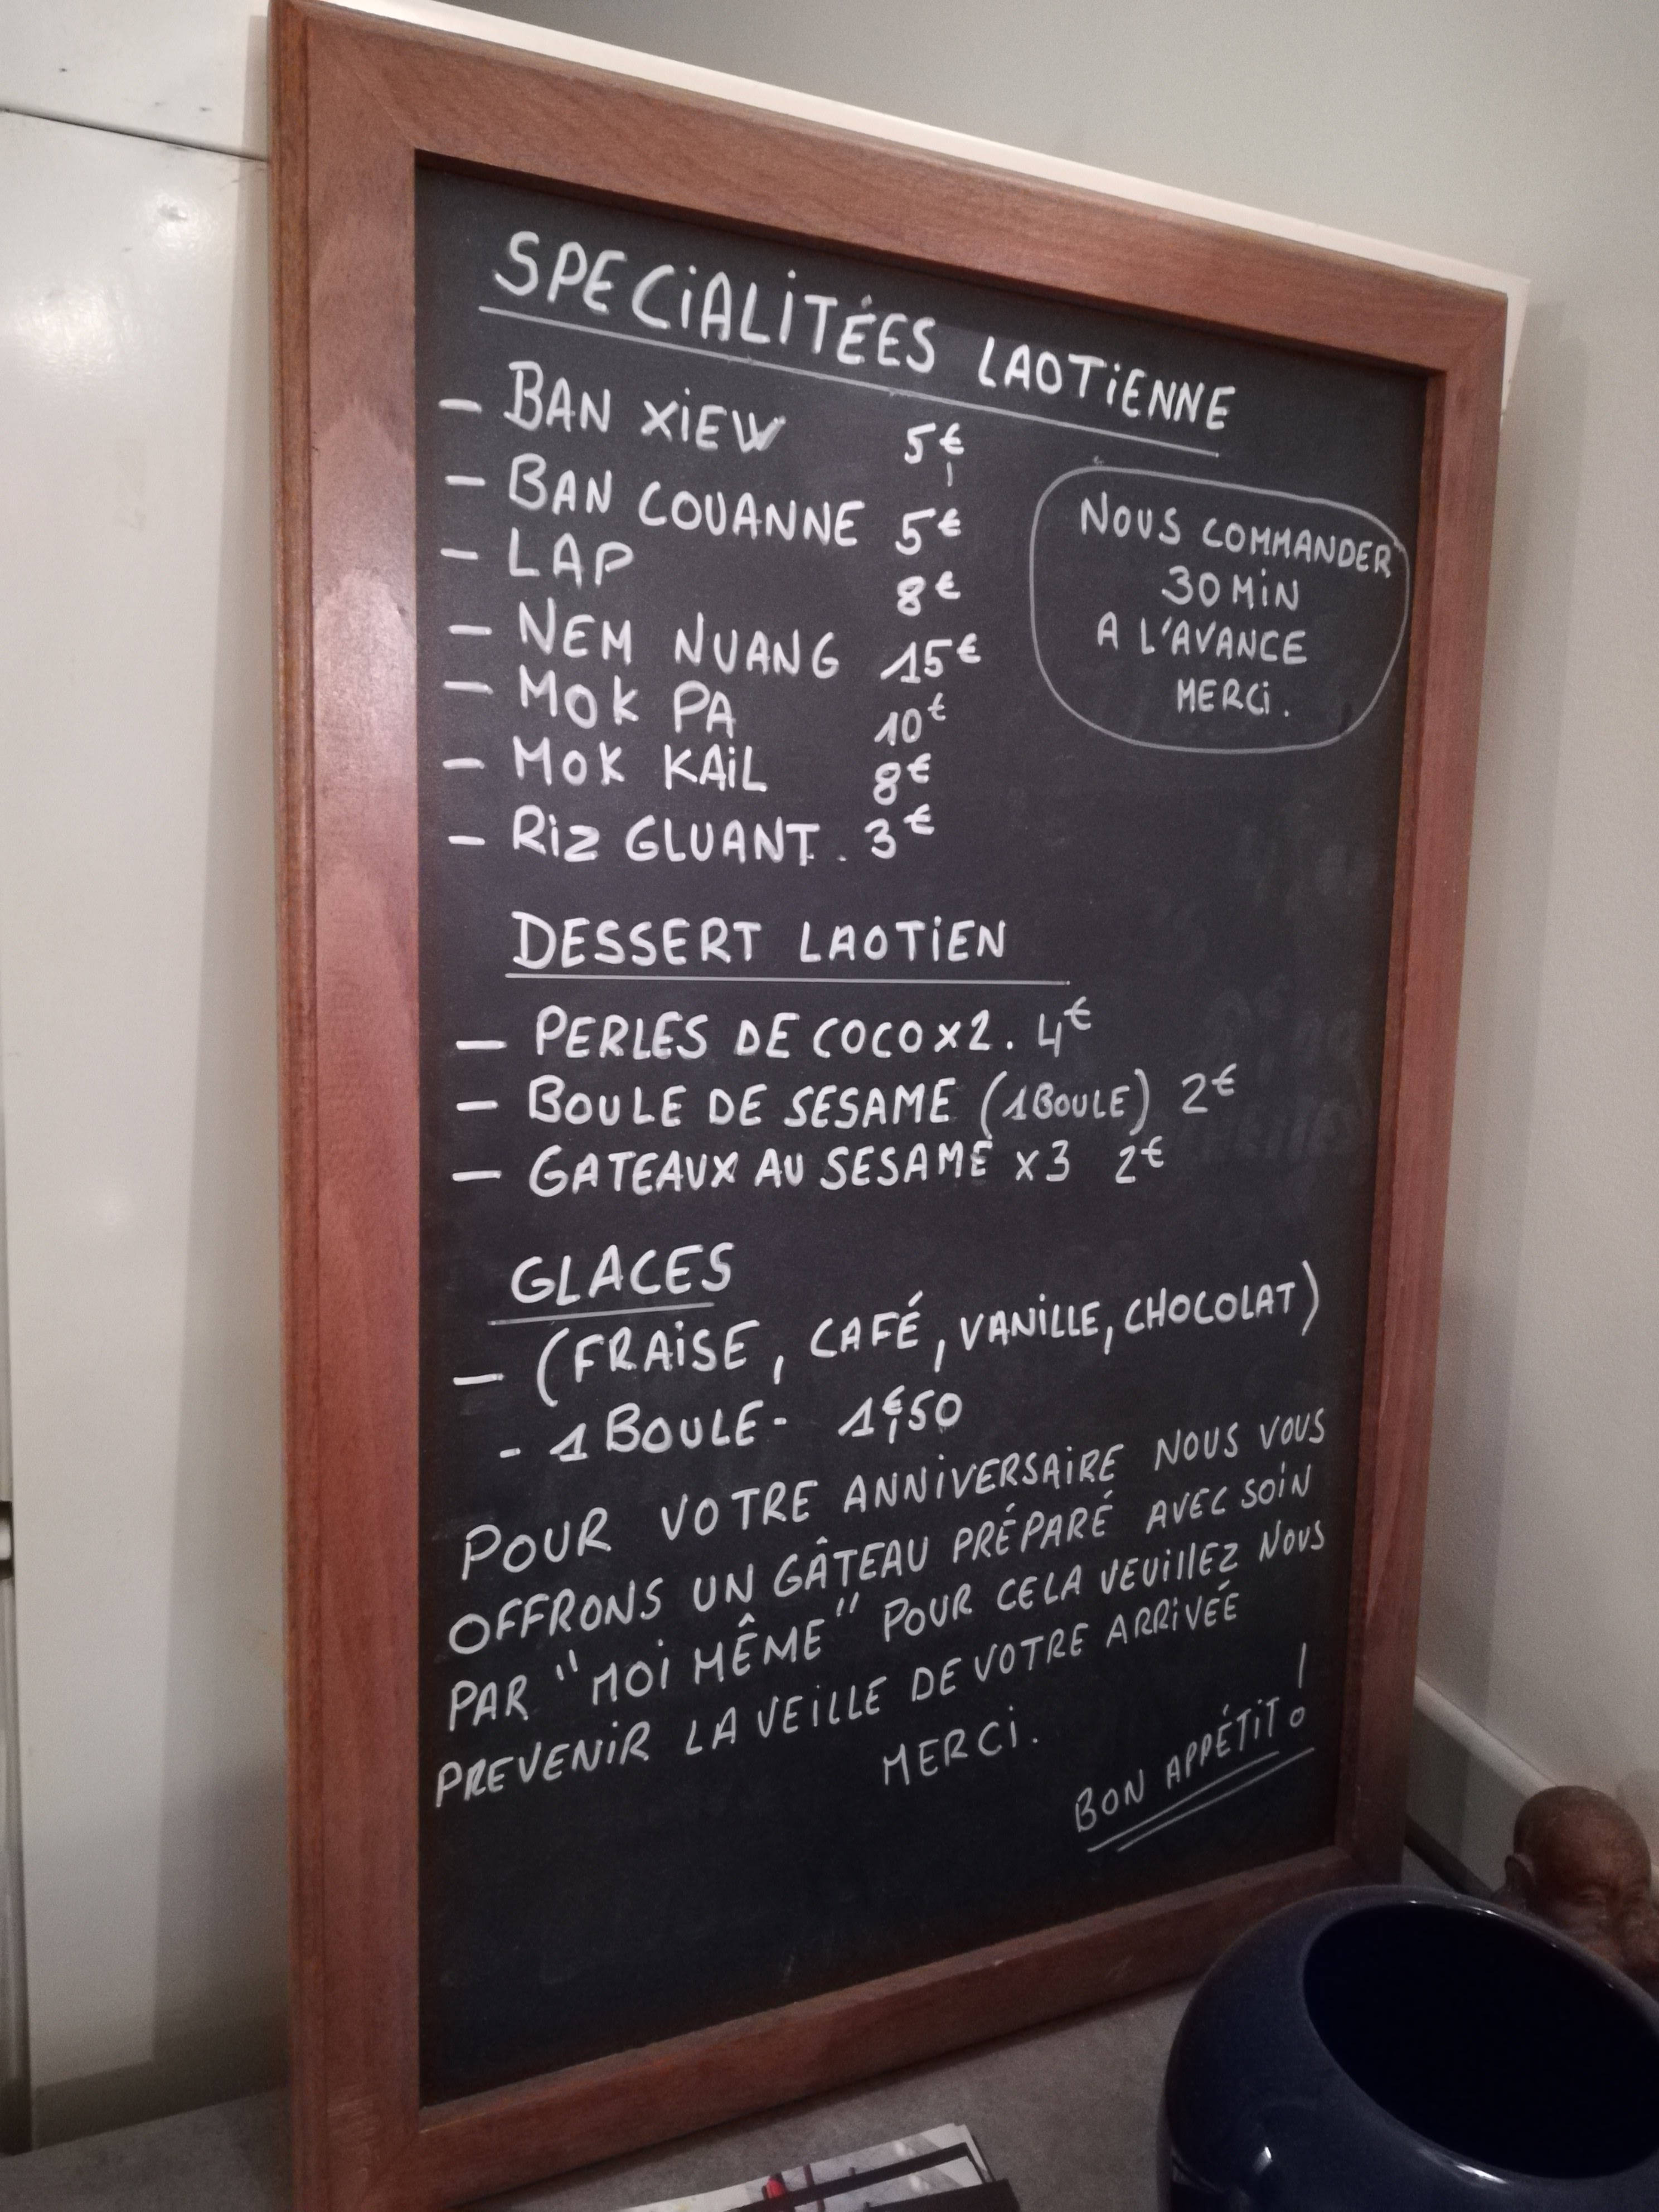 SPECIALITÉES LAOTIENNE
- BAN XIEW 5€
- BAN COUANNE 5€
- LAP 8€
- NEM NUANG 15€
- MOK PA 10€
- MOK KAIL 8€
- RIZ GLUANT. 3€
NOUS COMMANDER
30 MIN
A L'AVANCE
MERCI.
DESSERT LAOTIEN
- PERLES DE COCO x2. 4€
- BOULE DE SESAME (1 BOULE) 2€
- GATEAUX AU SESAME x3 2€
GLACES
- (FRAISE, CAFÉ, VANILLE, CHOCOLAT)
- 1 BOULE- 1€,50
POUR VOTRE ANNIVERSAIRE NOUS VOUS
OFFRONS UN GÂTEAU PRÉPARÉ AVEC SOIN
PAR "MOI MÊME" POUR CELA VEUILLEZ NOUS
PREVENIR LA VEILLE DE VOTRE ARRIVEÉ
MERCI.
BON APPÉTIT!